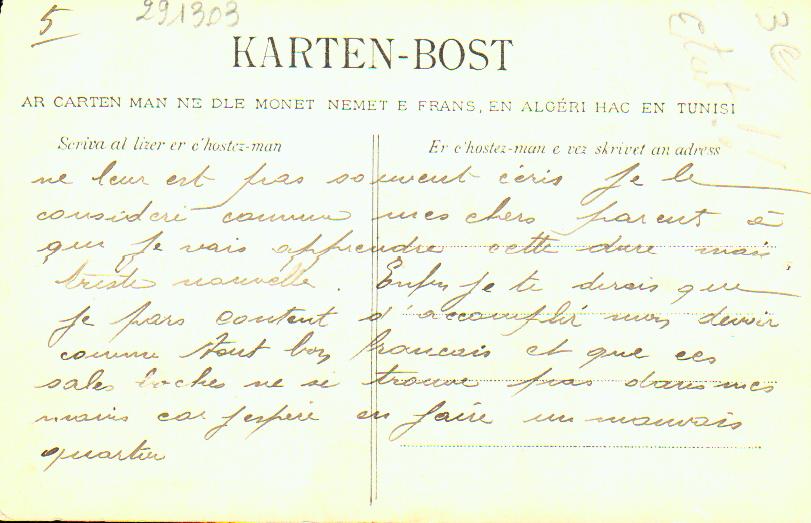 5
291303
KARTEN-BOST
AR CARTEN MAN NE DLE MONET NEMET E FRANS, EN ALGÉRI HAC EN TUNISI
Scriva al lizer er c'hostez-man
Er c'hostez-man e vez skrivet an adress
ne leur est pas souvent écris je le
considéré comme mes chers parent à
qui je vais apprendre cette dure mais
triste nouvelle. Enfin je te dirais que
je pars content d'accomplir mon devoir
comme tout bon francais et que ces
sales boches ne se trouve pas dans mes
mains car j'espère en faire un mauvais
quartier